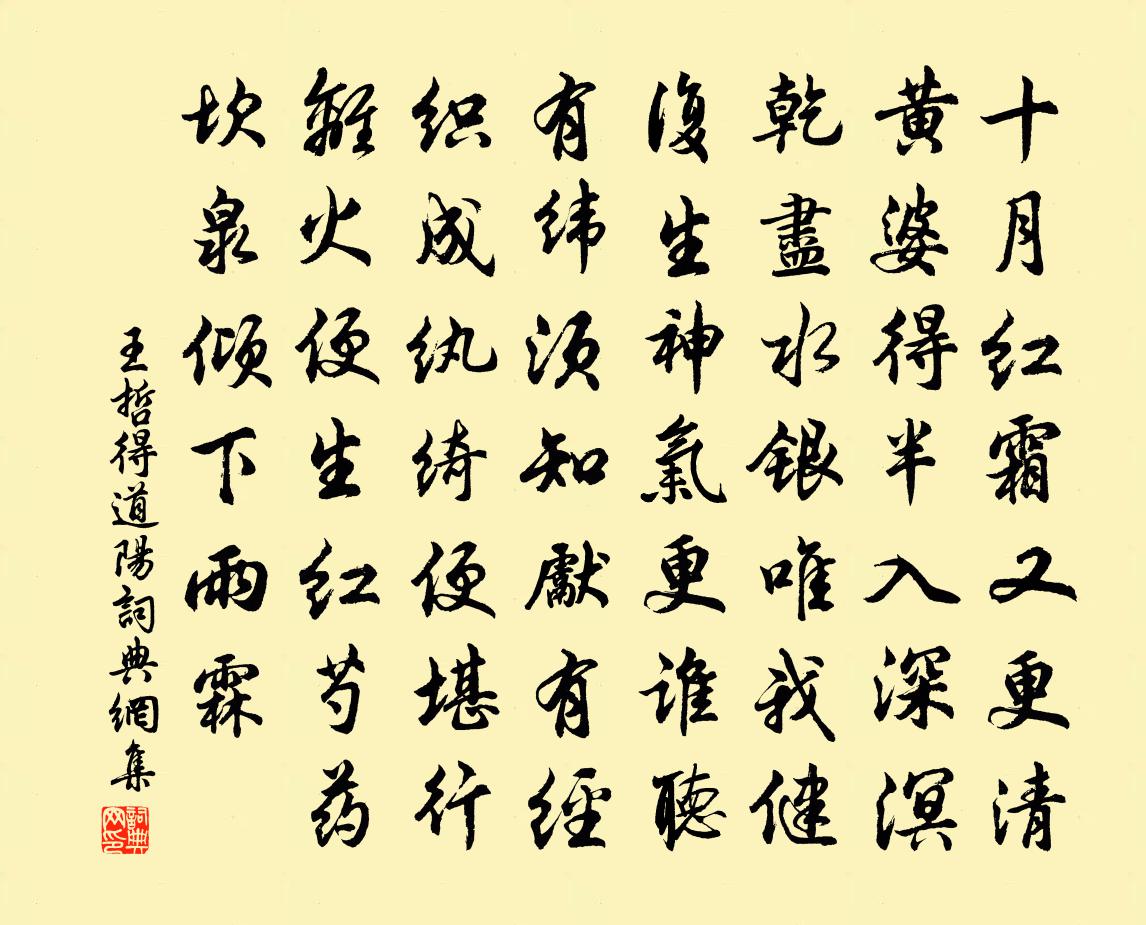 十月红霜又更清
黄婆得半入深溟
乾盡水银唯我健
復生神氣更谁聽
有纬须知獻有經
织成纨绮便堪行
離火便生红芍药
坎泉倾下雨霖
王哲得道陽詞典網集
詞典网印